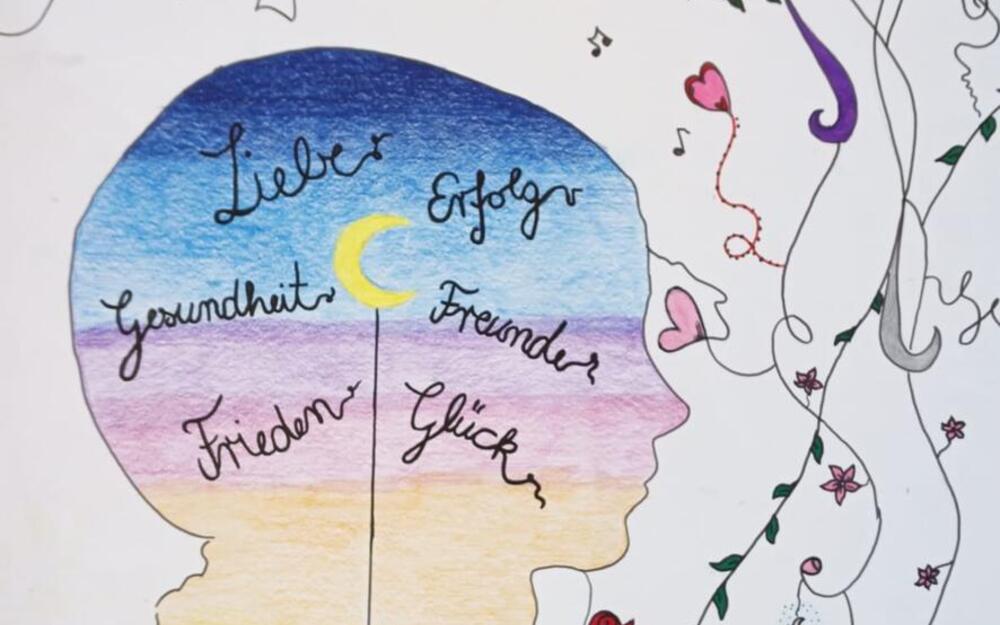 Liebe
Erfolg
Gesundheit
Freunde
Frieden
Glück